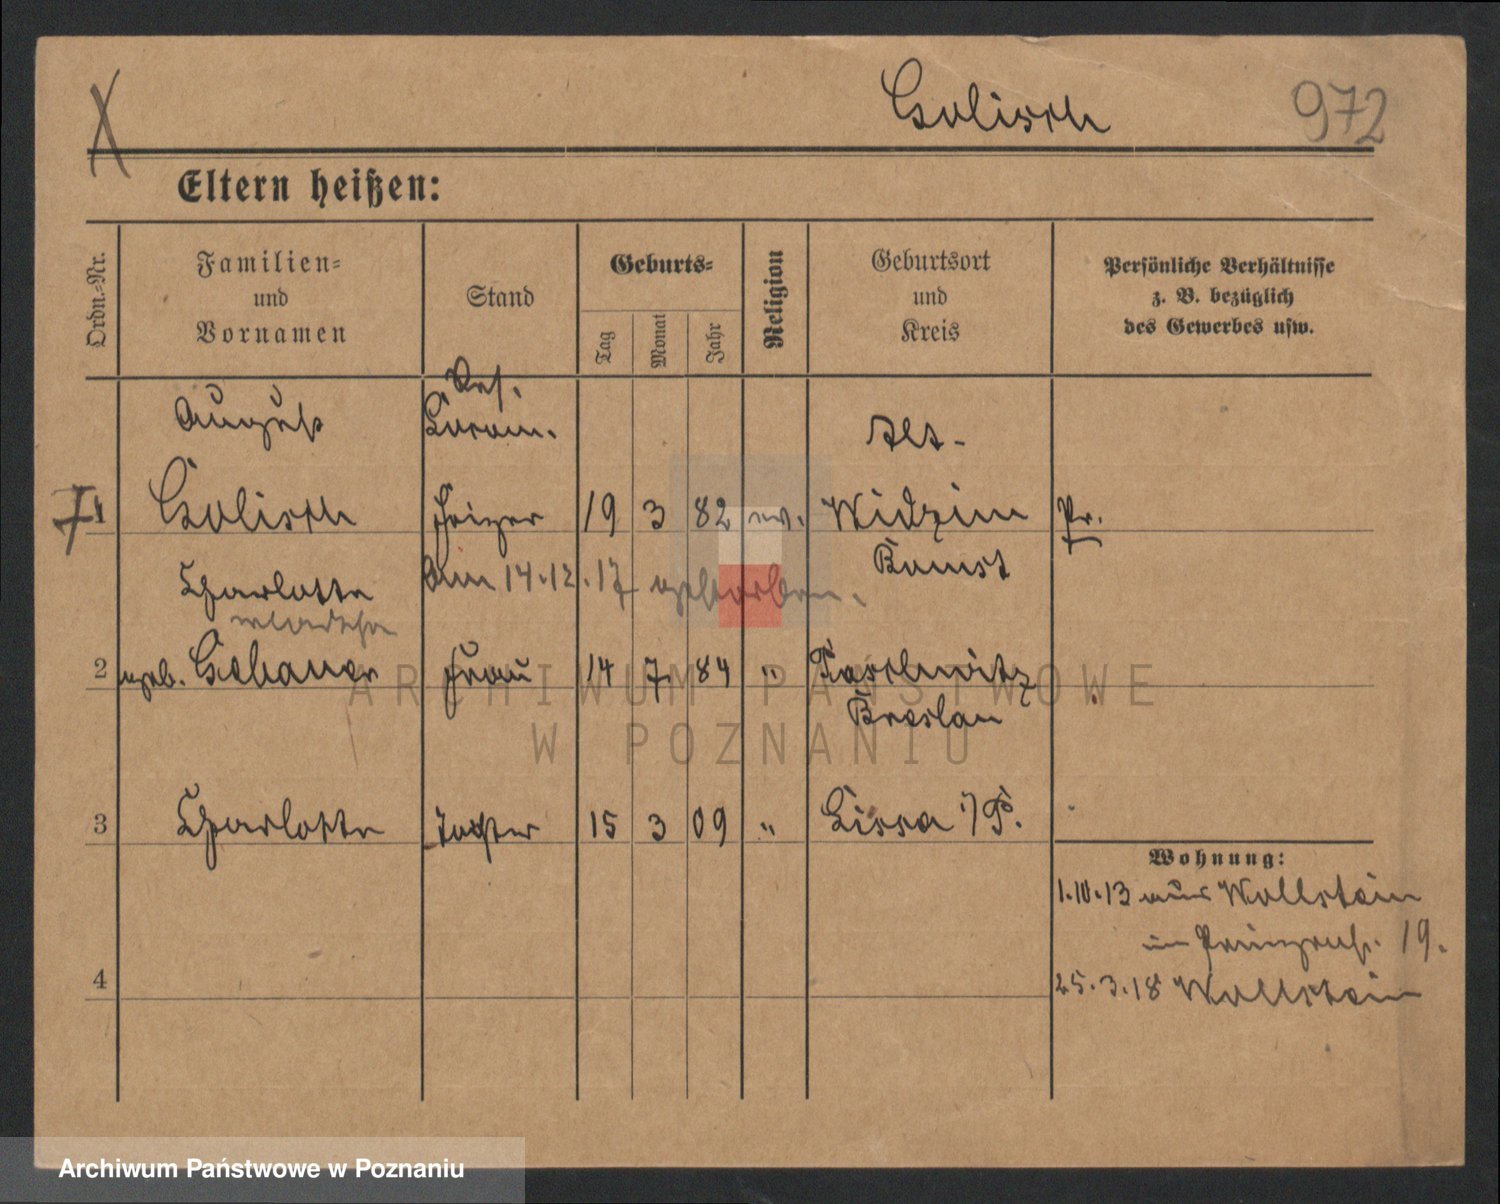 Golisch 972
Eltern heißen:
Ordn.-Nr.
Familien-
und
Vornamen
Stand
Geburts-
Tag
Monat
Jahr
Religion
Geburtsort
und
Kreis
Persönliche Verhältnisse
z. B. bezüglich
des Gewerbes usw.
Res.
August
Alt-
1 Golisch Heizer 19 3 82 ev. Widzim Pr.
Bomst
Charlotte
Am 14.12.17 gestorben.
2 geb. Gebauer Frau 14 7. 84 " Breslau
3 Charlotte Tochter 15 3 09 " Lissa i/P.
Wohnung:
1.10.13 aus Wollstein
19.
25.3.18 Wollstein
4
ARCHIWUM PAŃSTWOWE
W POZNANIU
Archiwum Państwowe w Poznaniu